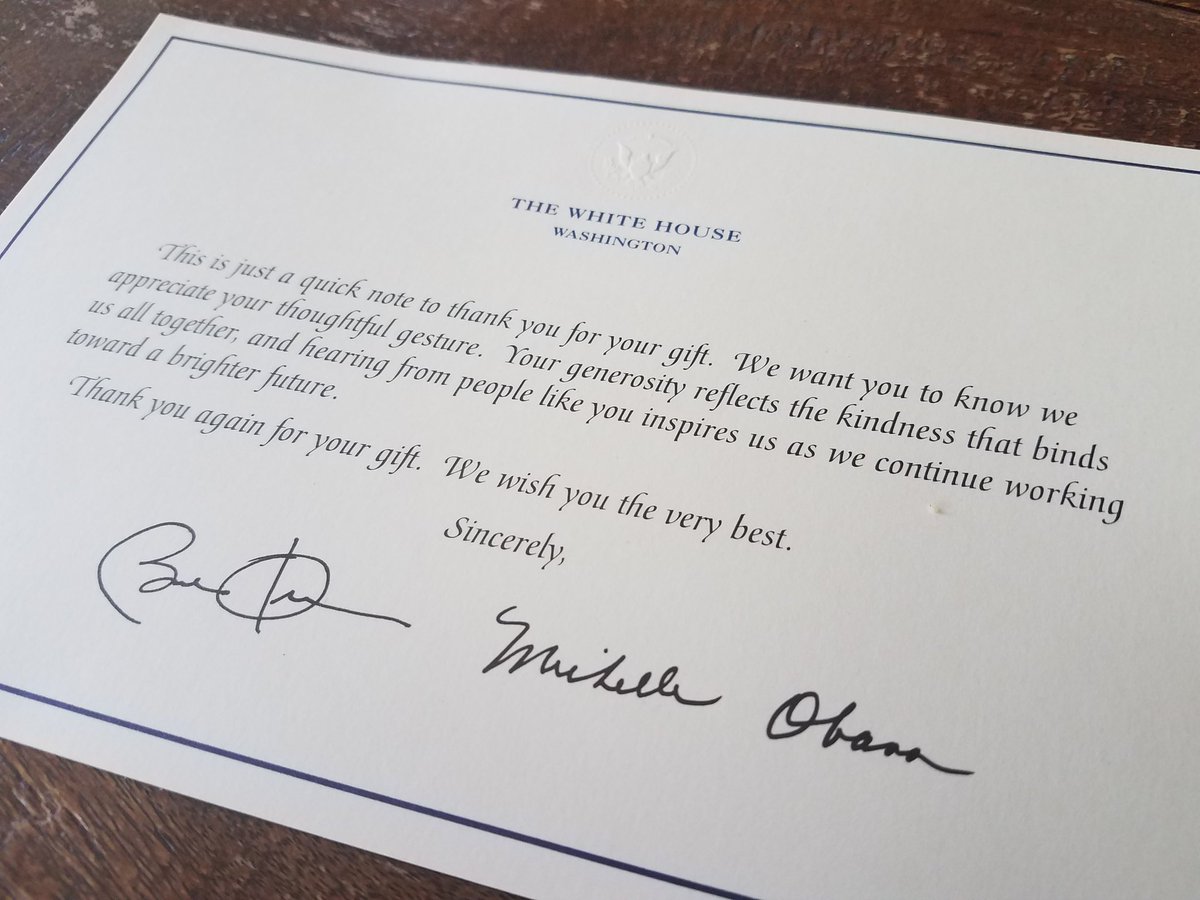 THE WHITE HOUSE
WASHINGTON
This is just a quick note to thank you for your gift. We want you to know we
appreciate your thoughtful gesture. Your generosity reflects the kindness that binds
us all together, and hearing from people like you inspires us as we continue working
toward a brighter future.
Thank you again for your gift. We wish you the very best.
Sincerely,
Michelle Obama